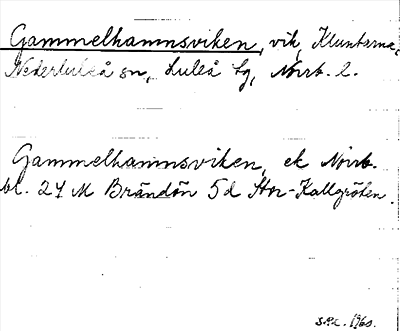 Gammelhamnsviken, vik, Kluntarna,
Nederluleå sn, Luleå tg, Norrb. l.
Gammelhamnsviken, ek Norrb.
bl. 24 M Brändön 5d Stor-Kallgrötan.
1960.